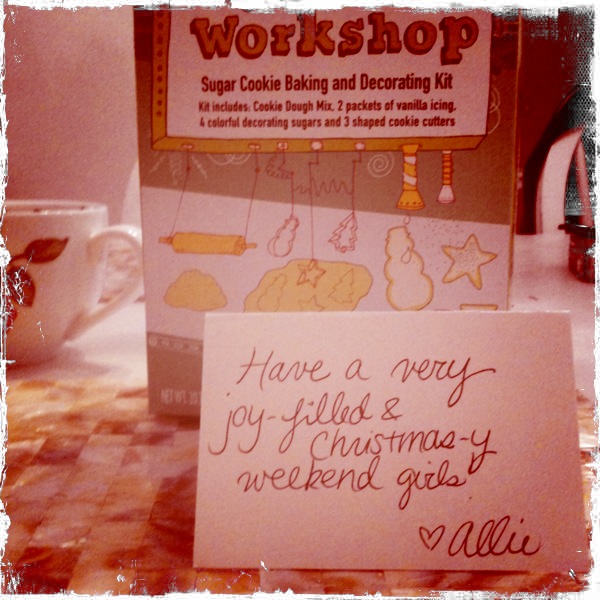 Workshop
Sugar Cookie Baking and Decorating Kit
Kit includes: Cookie Dough Mix, 2 packets of vanilla icing,
4 colorful decorating sugars and 3 shaped cookie cutters
NET WT.
Have a very
joy-filled &
Christmas-y
weekend girls
♡ Allie